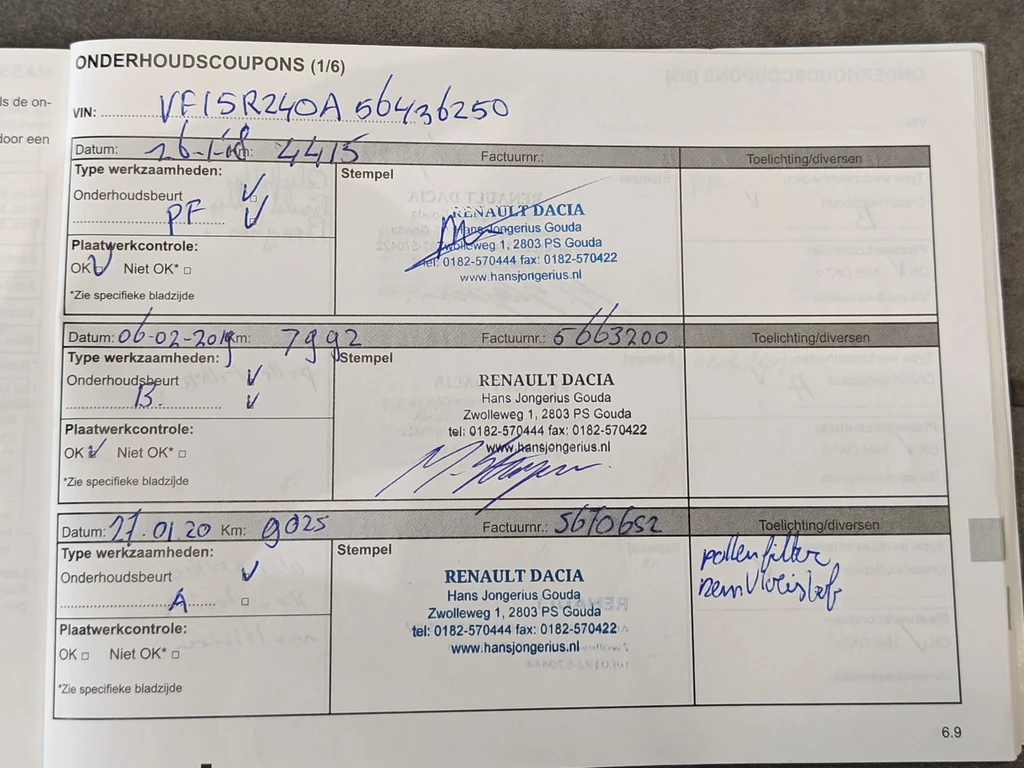 ONDERHOUDSCOUPONS (1/6)
ls de on-
door een
VIN: VF15R240A56436250
Datum: 26-1-18 Km: 4415 Factuurnr.: Toelichting/diversen
Type werkzaamheden: Stempel
Onderhoudsbeurt ✓
PF ✓
RENAULT DACIA
Hans Jongerius Gouda
Zwolleweg 1, 2803 PS Gouda
tel: 0182-570444 fax: 0182-570422
www.hansjongerius.nl
Plaatwerkcontrole:
OK ✓ Niet OK* □
*Zie specifieke bladzijde
Datum: 06-02-2019 Km: 7992 Factuurnr.: 5663200 Toelichting/diversen
Type werkzaamheden: Stempel
Onderhoudsbeurt ✓
B. ✓
RENAULT DACIA
Hans Jongerius Gouda
Zwolleweg 1, 2803 PS Gouda
tel: 0182-570444 fax: 0182-570422
www.hansjongerius.nl
Plaatwerkcontrole:
OK ✓ Niet OK* □
*Zie specifieke bladzijde
Datum: 27.01.20 Km: 9025 Factuurnr.: 5670652 Toelichting/diversen
Type werkzaamheden: Stempel
Onderhoudsbeurt ✓
A □
RENAULT DACIA
Hans Jongerius Gouda
Zwolleweg 1, 2803 PS Gouda
tel: 0182-570444 fax: 0182-570422
www.hansjongerius.nl
pollenfilter
remvloeistof
Plaatwerkcontrole:
OK □ Niet OK* □
*Zie specifieke bladzijde
6.9